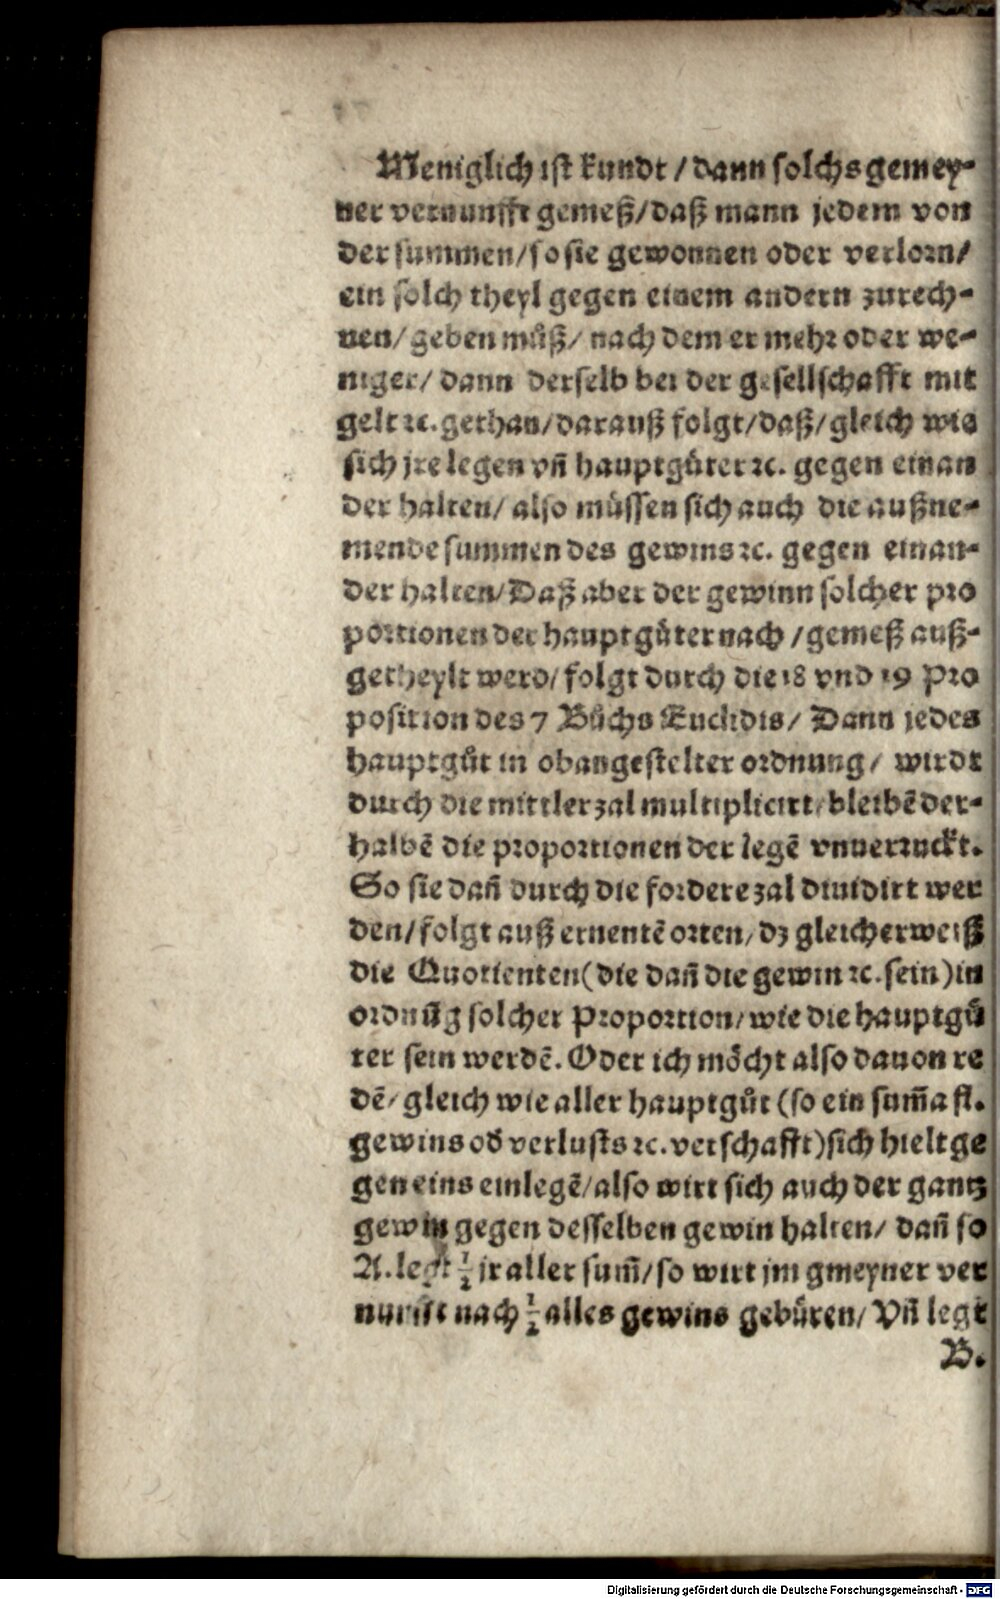 Meniglich ist kundt / dann solchs gemey-
ner vernunfft gemeß/daß mann jedem von
der summen/so sie gewonnen oder verlorn/
ein solch theyl gegen einem andern zurech-
nen/geben můß/ nach dem er mehr oder we-
niger/ dann derselb bei der gesellschafft mit
gelt ꝛc. gethan/darauß folgt/daß/gleich wie
sich jre legen vñ hauptgůter ꝛc. gegen einan
der halten/ also müssen sich auch die außne-
mende summen des gewins ꝛc. gegen einan-
der halten/Daß aber der gewinn solcher pro
portionen der hauptgůter nach /gemeß auß-
getheylt werd/ folgt durch die 18 vnd 19 Pro
position des 7 Bůchs Euclidis/ Dann jedes
hauptgůt in obangestelter ordnung/ wirdt
durch die mittler zal multiplicirt/bleibẽ der-
halbẽ die proportionen der legẽ vnuerruckt.
So sie dañ durch die fordere zal diuidirt wer
den/folgt auß ernentẽ orten/dz gleicherweiß
die Quotienten(die dañ die gewin ꝛc. sein)in
ordnũg solcher Proportion/wie die hauptgů
ter sein werdẽ. Oder ich mőcht also dauon re
dẽ/gleich wie aller hauptgůt (so ein sum̃a fl.
gewins od̕ verlusts ꝛc. verschafft)sich hielt ge
gen eins einlegẽ/also wirt sich auch der gantz
gewin gegen desselben gewin halten/ dañ so
A. legt ½ jr aller sum̃/so wirt jm gmeyner ver
nunfft nach ½ alles gewins gebüren/ Vñ legt
B.
Digitalisierung gefördert durch die Deutsche Forschungsgemeinschaft - DFG